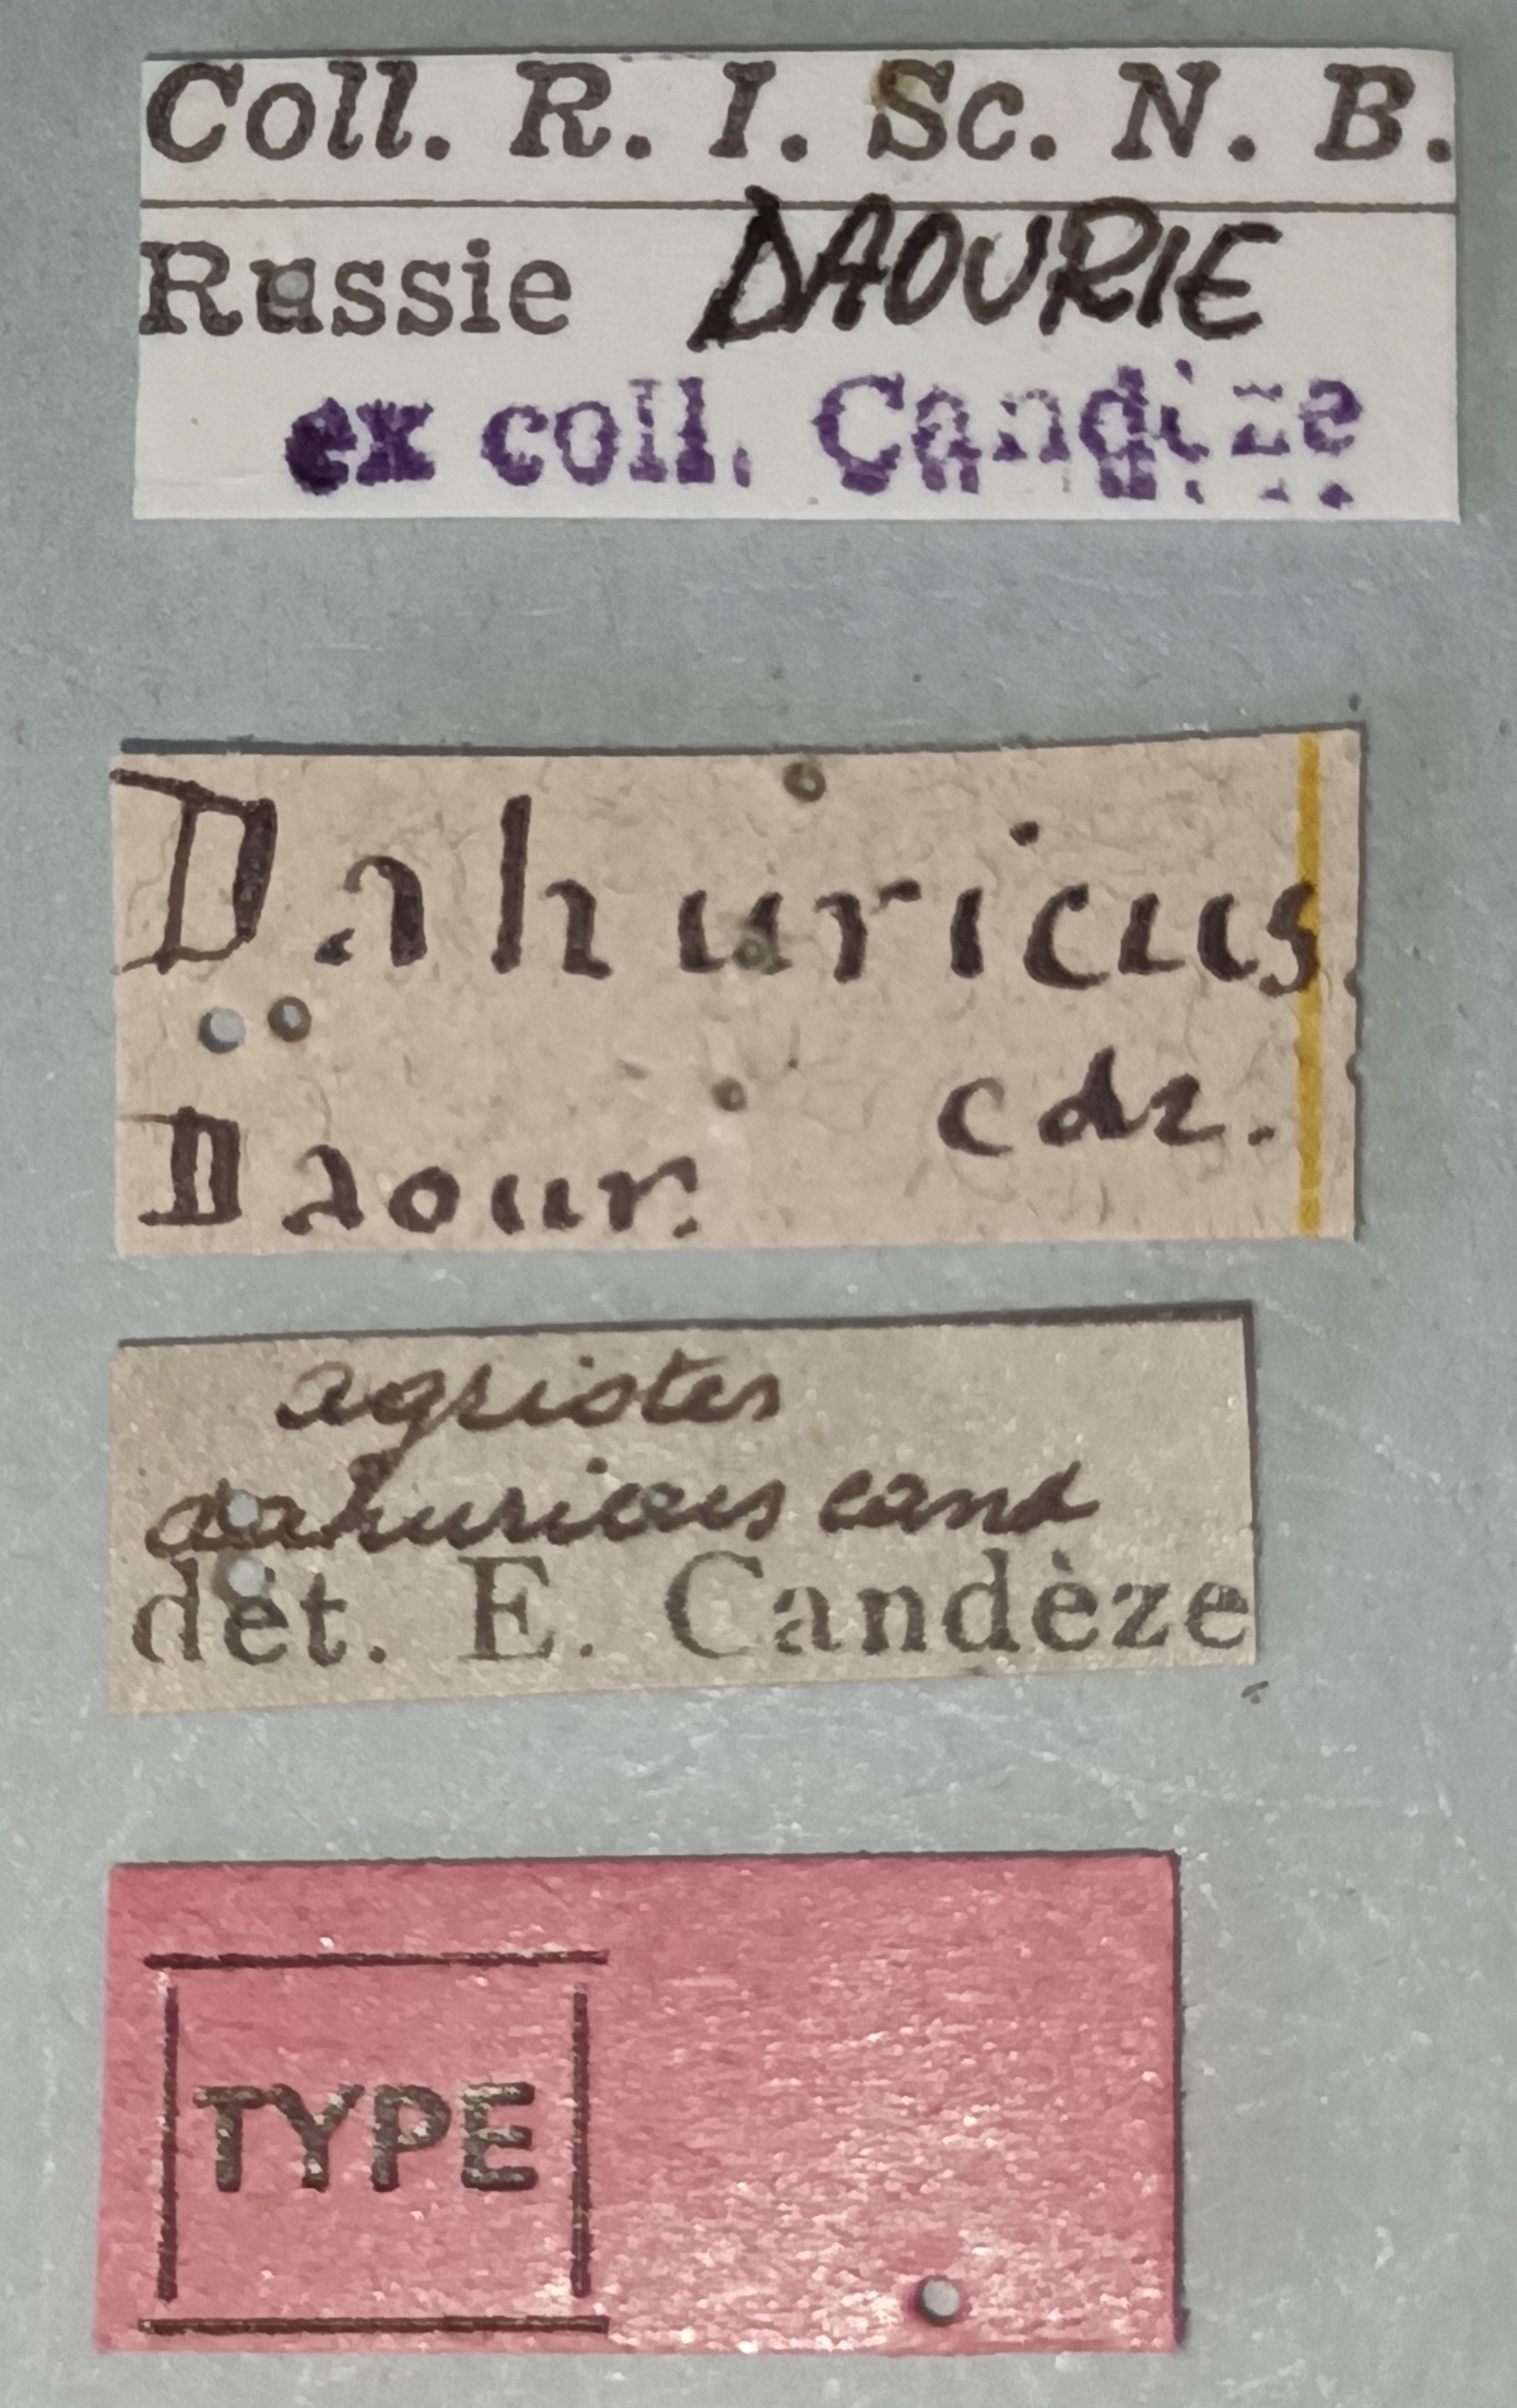 Coll. R. I. Sc. N. B.
Russie DAOURIE
ex coll. Candèze
Dahuricus
cdz.
Daour.
agriotes
dahuricus cand
dét. E. Candèze
TYPE